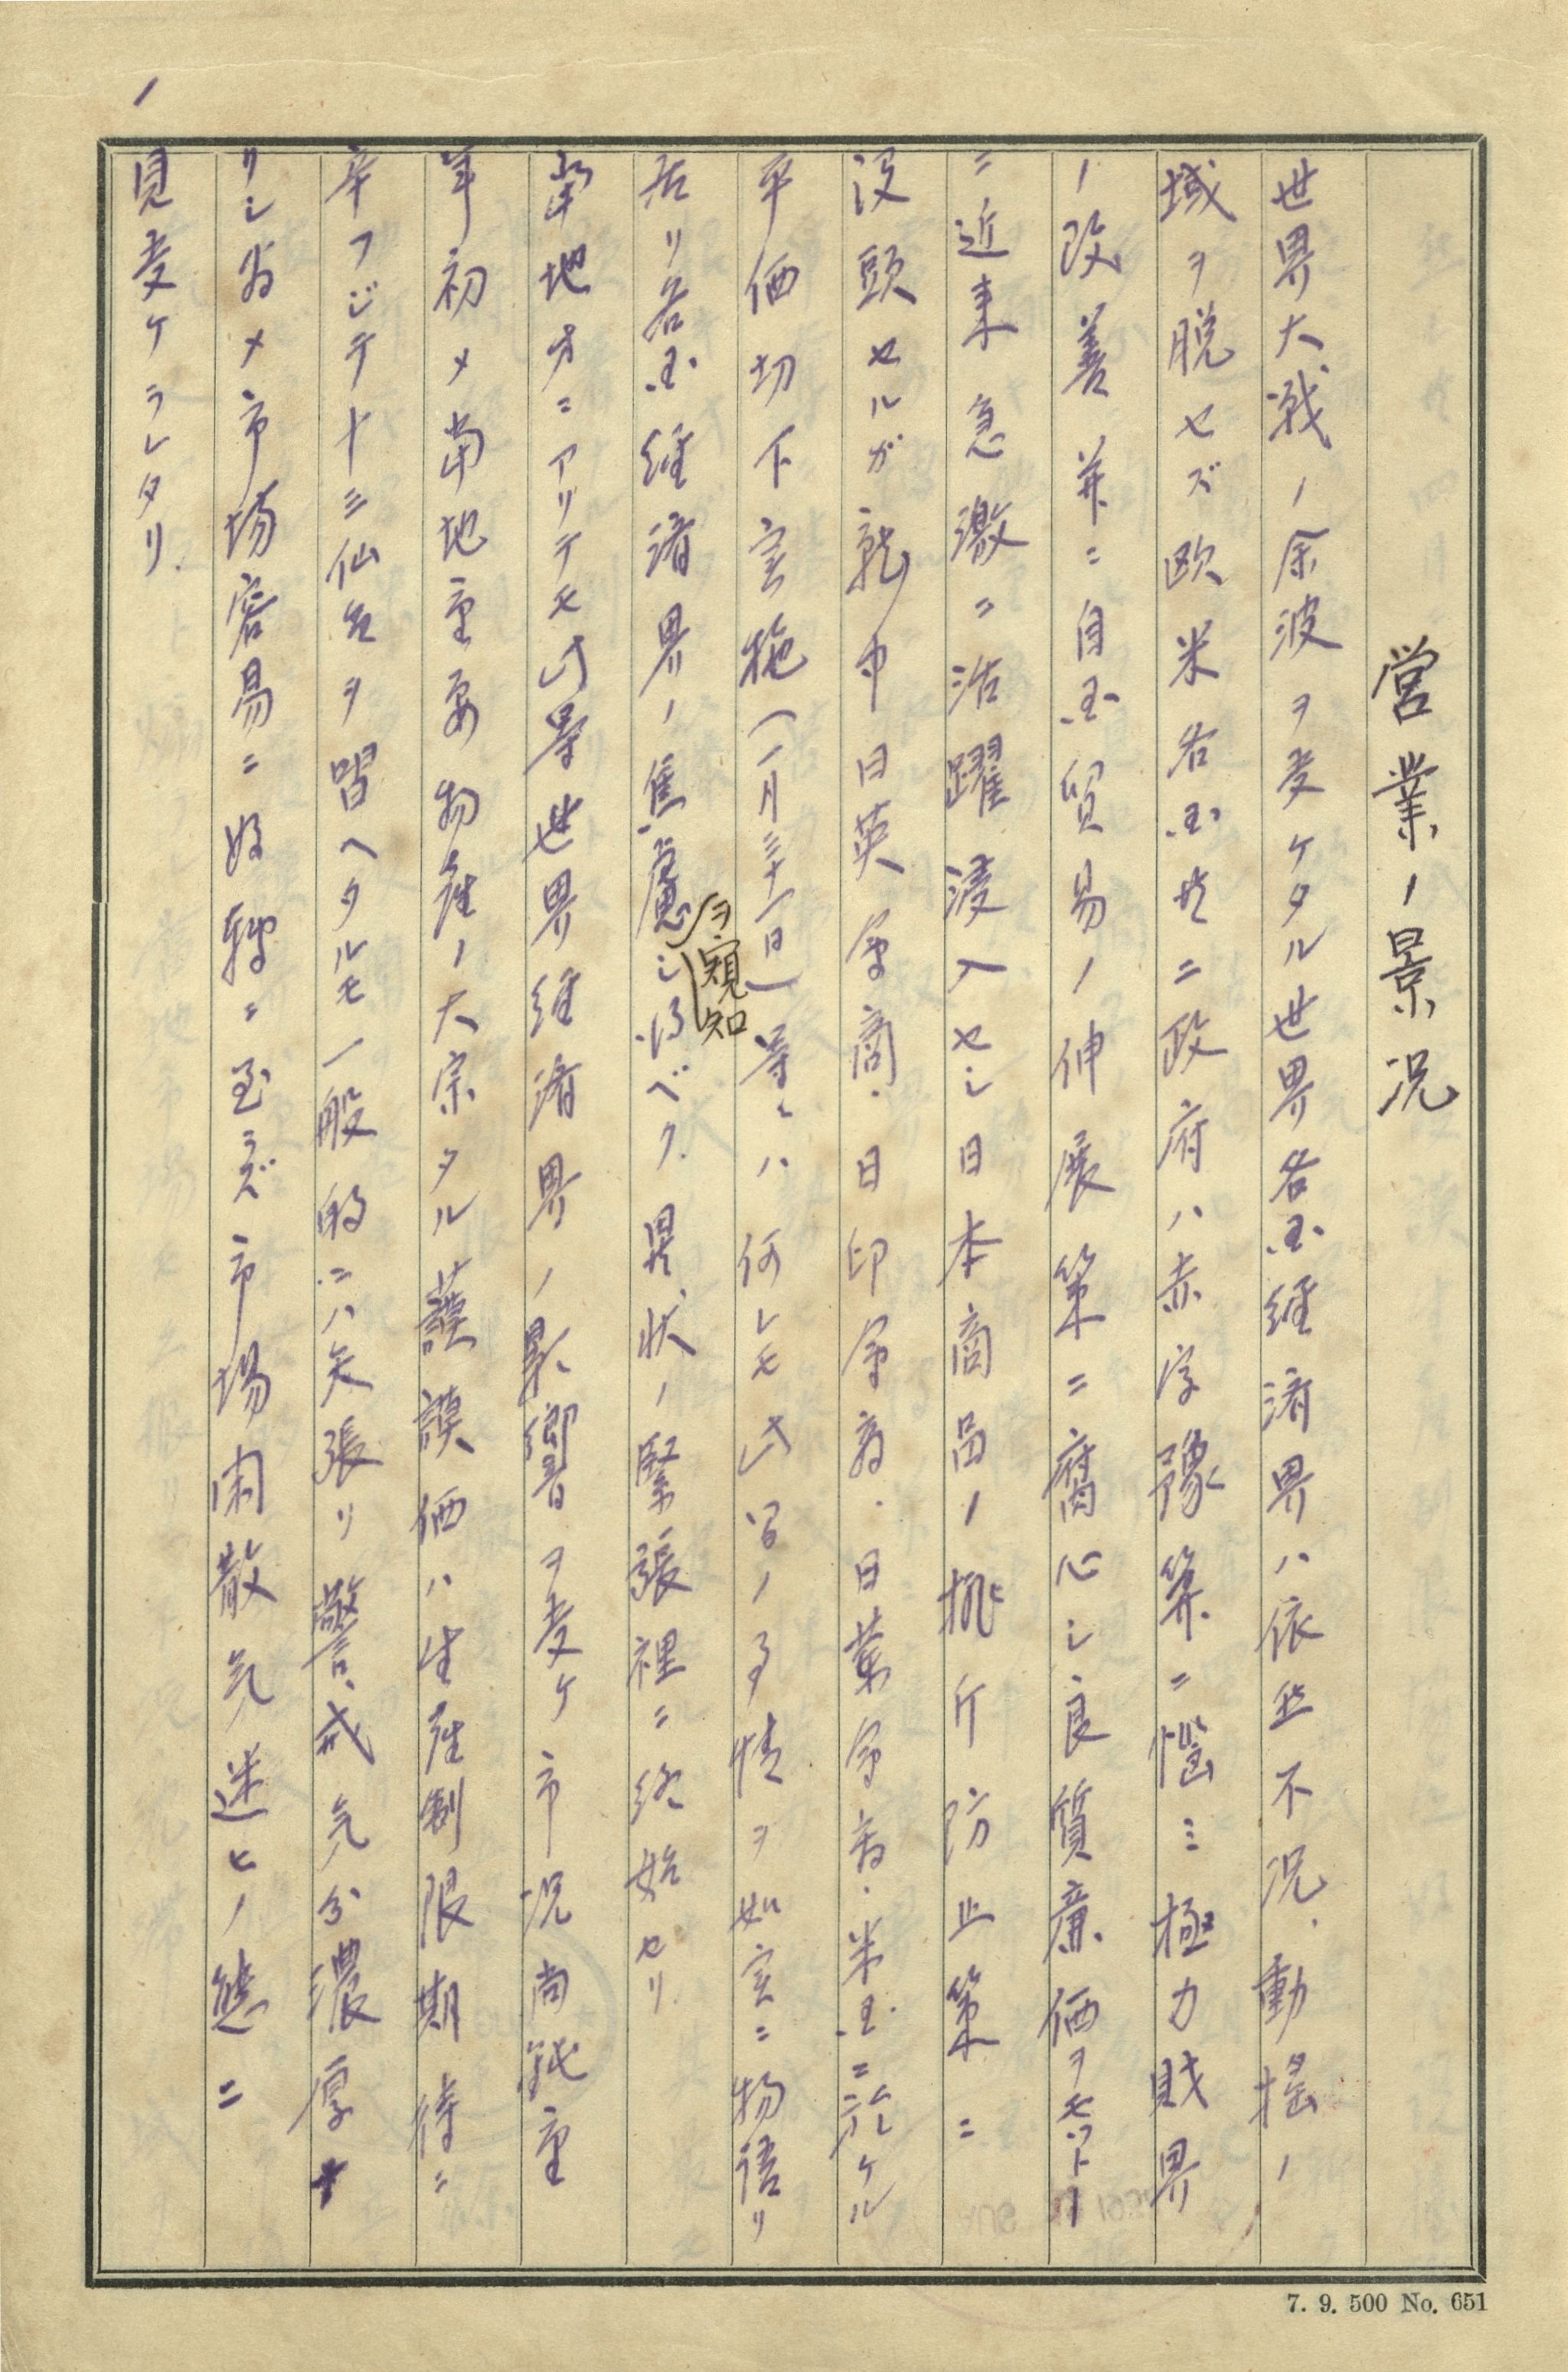 1
営業ノ景況
世界大戦ノ余波ヲ受ケタル世界各国経済界ハ依然不況、動揺ノ
域ヲ脱セズ欧米各国共ニ政府ハ赤字豫算ニ悩ミ極力財界
ノ改善並ニ自国貿易ノ伸展策ニ腐心シ良質廉価ヲモツトー
ニ近来急激ニ活躍浸入セシ日本商品ノ排斥防止策ニ
没頭セルガ就中日英会商、日印会商、日蘭会商、米国ニ於ケル
平価切下実施(一月三十一日)等々ハ何レモ此間ノ事情ヲ如実ニ物語リ
居リ各国経済界ノ焦慮シ得ベク異状ノ緊張裡ニ終始セリ
ヲ窺知
当地方ニアリテモ此等世界経済界ノ影響ヲ受ケ市況尚鈍重
年初メ当地重要物産ノ大宗タル護謨価ハ生産制限期待ニ
辛フジテ十三仙台ヲ唱ヘタルモ一般的ニハ矢張リ警戒気分濃厚ナ
リシ為メ市場容易ニ好転ニ至ラズ市場閑散気迷ヒノ態ニ
見受ケラレタリ.
7. 9. 500 No. 651